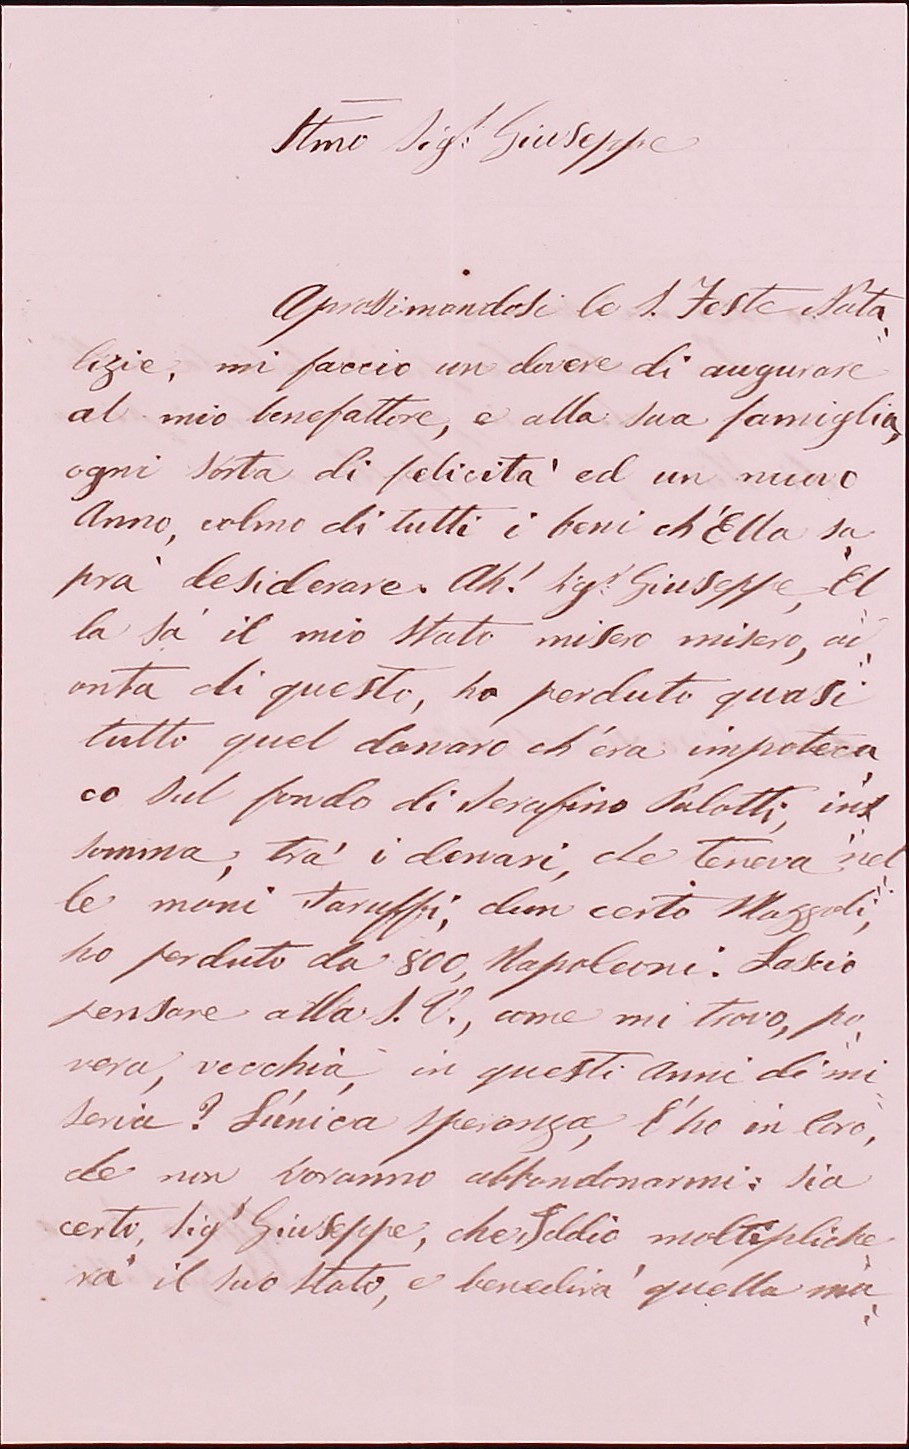 Stmo Sigr. Giuseppe
Aprossimandosi le S. Feste Nata„
lizie, mi faccio un dovere di augurare
al mio benefattore, e alla sua famiglia,
ogni sorta di felicita' ed un nuovo
Anno, colmo di tutti i beni ch'Ella sa„
pra' desiderare. Ah! Sigr. Giuseppe, El„
la sa' il mio stato misero misero, ad
onta di questo, ho perduto quasi
tutto quel danaro ch'era impoteca„
co sul fondo di Serafino Palotti, in„
somma, tra' i denari, che teneva nel„
le mani Taruffi, dun certo Mazzoli,
ho perduto da 800, Napoleoni. Lascio
pensare alla S. V., come mi trovo, po„
vera, vecchia, in questi anni di mi„
seria? L'unica speranza, l'ho in loro,
che non voranno abbandonarmi: sia
certo, Sigr Giuseppe, che Iddio moltipliche„
ra' il suo stato, e benedira' quella ma„